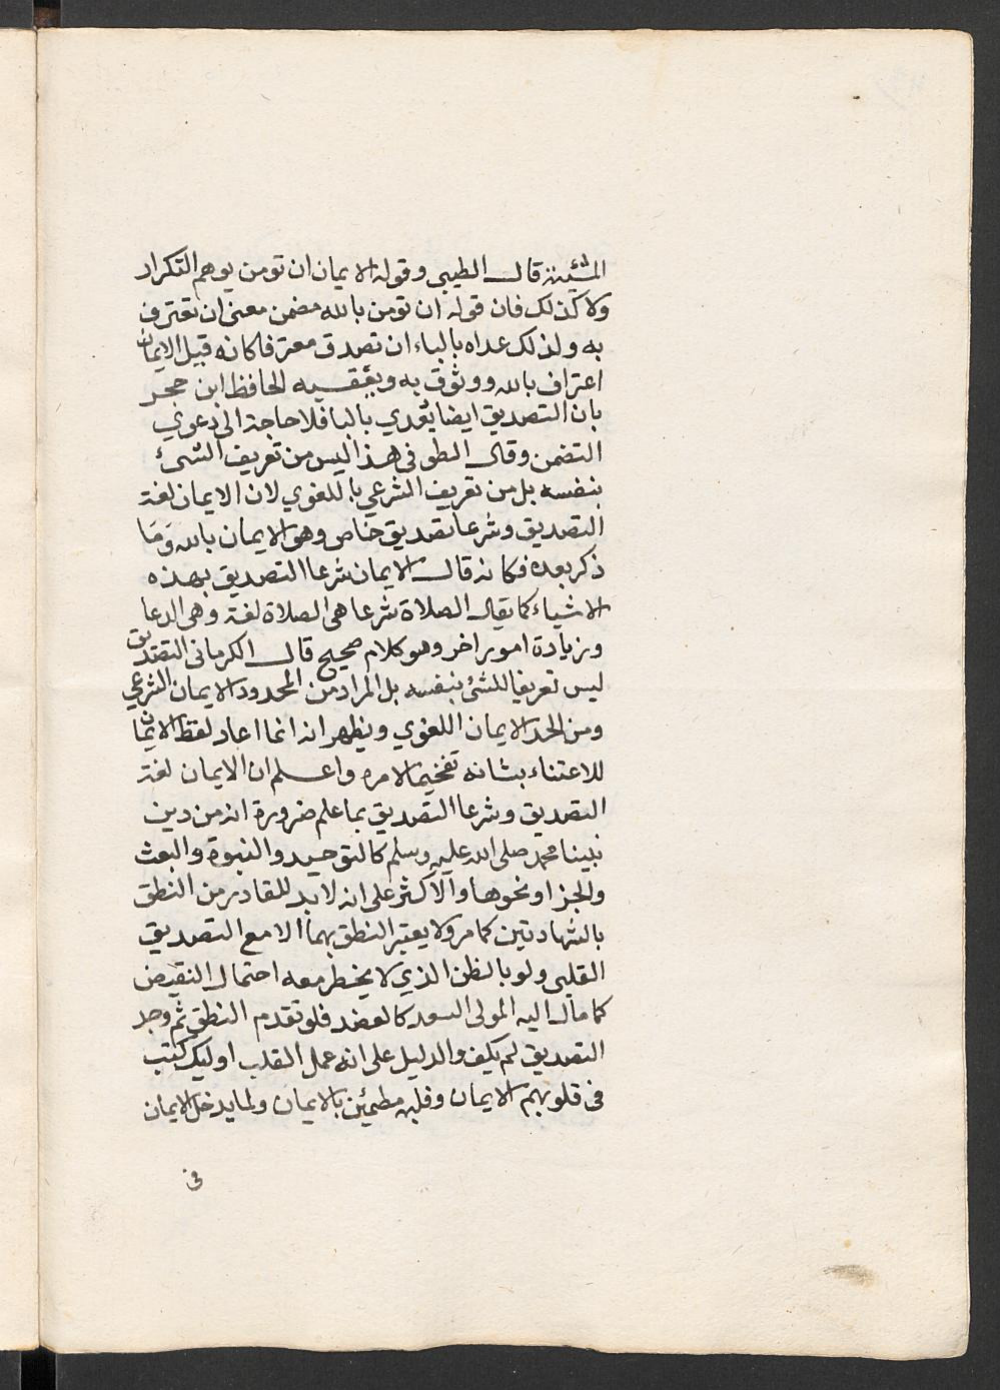 المشيئة قال الطيبي وقوله الايمان ان تومن يوهم التكرار
ولا كذلك فان قوله ان تومن بالله مضمن معنى ان تعترف
به ولذلك عداه بالباء ان تصدق معترفا كانه قيل الايمان
اعتراف بالله ووثوق به ويتعقبه الحافظ ابن حجر
بان التصديق ايضا يعدي بالبا فلا حاجة الى دعوي
التضمن وقال الطوفى هذا ليس من تعريف الشئ
بنفسه بل من تعريف الشرعي باللغوي لان الايمان لغة
التصديق وشرعا تصديق خاص وهو الايمان بالله وما
ذكر بعده فكانه قال الايمان شرعا التصديق بهذه
الاشياء كما يقال الصلاة شرعا هى الصلاة لغة وهى الدعا
وزيادة امور اخر وهو كلام صحيح قال الكرمانى التصديق
ليس تعريفا للشئ بنفسه بل المراد من المحدود الايمان الشرعي
ومن الحد الايمان اللغوي ويظهر انه انما اعاد لفظ الايمان
للاعتناء بشانه تفخيما لامره واعلم ان الايمان لغة
التصديق وشرعا التصديق بما علم ضرورة انه من دين
نبينا محمد صلى الله عليه وسلم كالتوحيد والنبوة والبعث
والجزا ونحوها والاكثر على انه لا بد للقادر من النطق
بالشهادتين كما مر ولا يعتبر النطق بهما الا مع التصديق
القلبى ولو بالظن الذي لا يخطر معه احتمال النقيض
كما مال اليه المولى السعد كالعضد فلو تقدم النطق ثم وجد
التصديق لم يكف والدليل على انه عمل القلب اوليك كتب
فى قلوبهم الايمان وقلبه مطمئن بالايمان ولما يدخل الايمان
فى